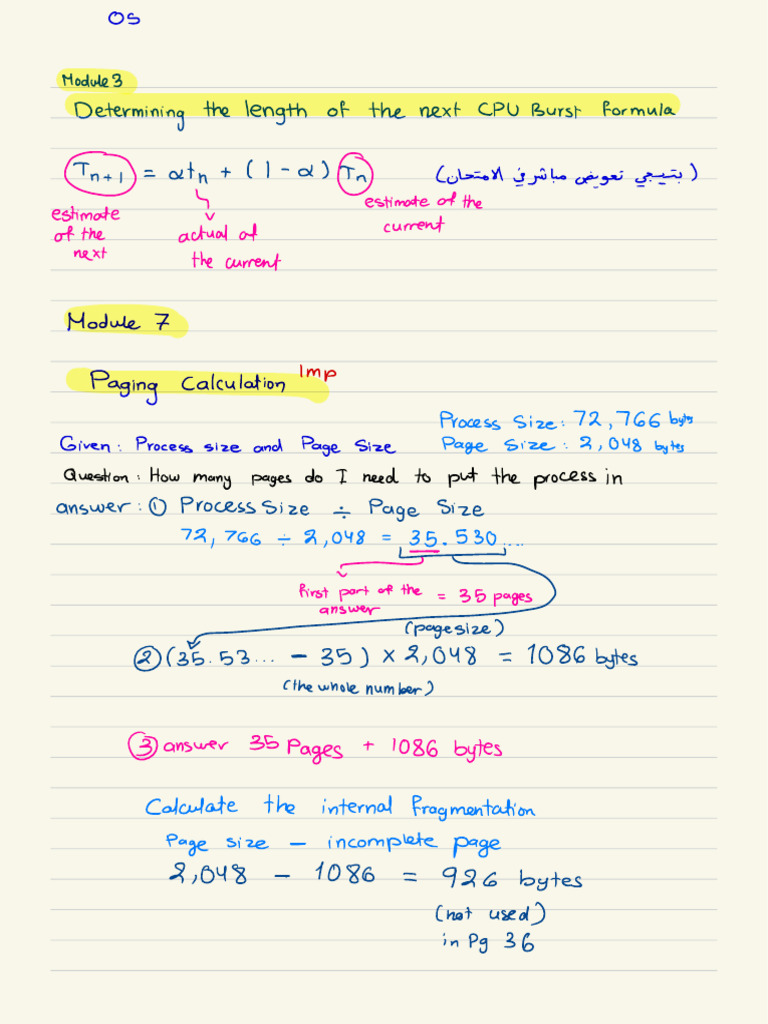 OS
Module 3
Determining the length of the next CPU Burst formula
Tn+1 = αtn + (1 - α) Tn (بتيجي تعويض مباشر في الامتحان)
estimate of the next
actual of the current
estimate of the current
Module 7
Paging Calculation Imp
Process Size: 72,766 byts
Given: Process size and Page Size
Page Size: 2,048 bytes
Question: How many pages do I need to put the process in
answer: ① Process Size ÷ Page Size
72,766 ÷ 2,048 = 35.530....
first part of the answer = 35 pages
(page size)
② (35.53... - 35) × 2,048 = 1086 bytes
(the whole number)
③ answer 35 Pages + 1086 bytes
Calculate the internal fragmentation
Page size - incomplete page
2,048 - 1086 = 926 bytes
(not used)
in Pg 36